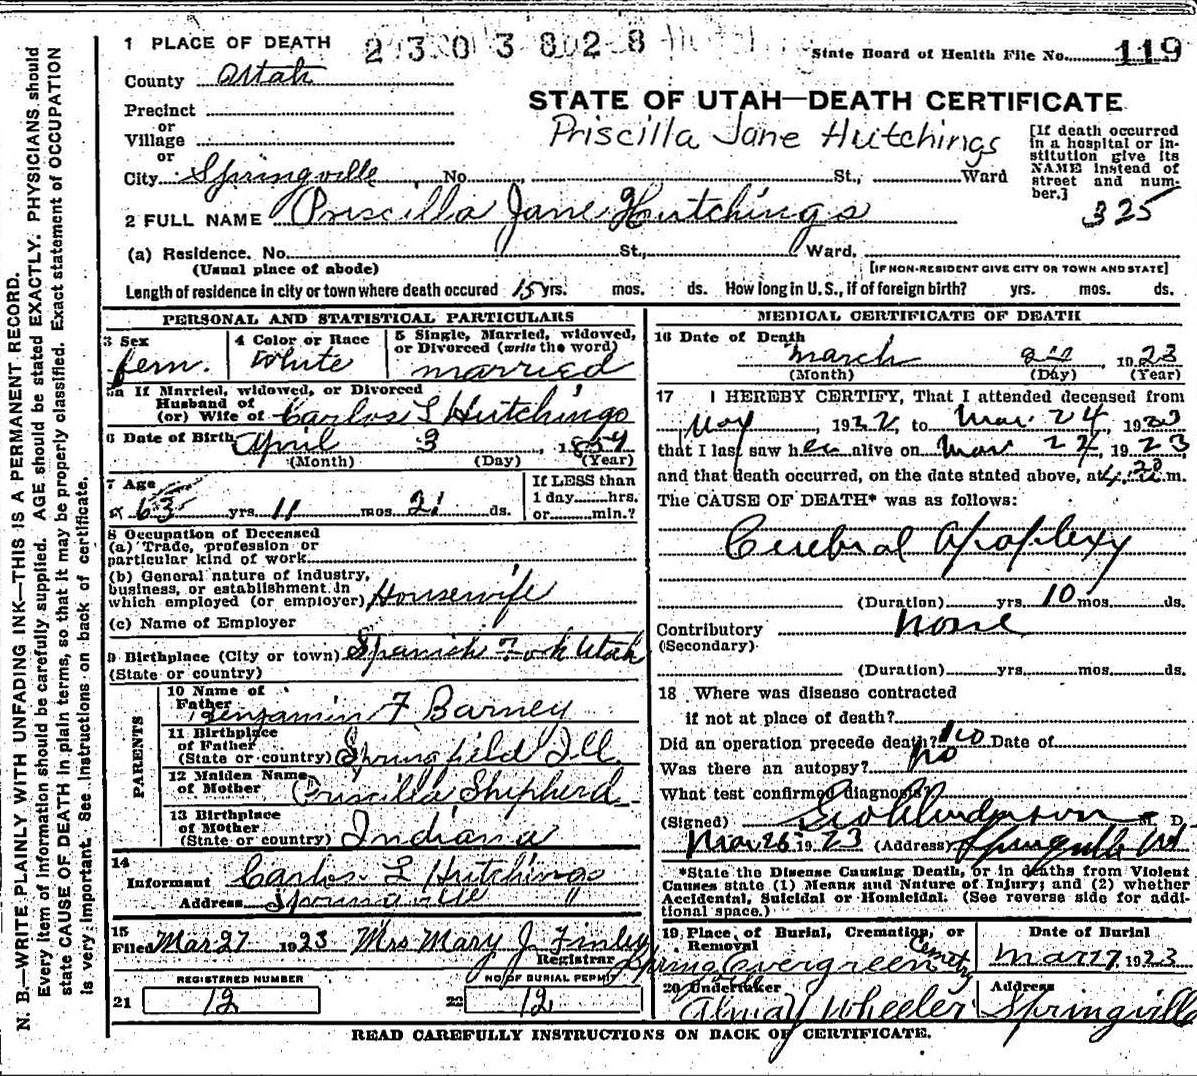 1 PLACE OF DEATH
2303 8028 Hutchings
State Board of Health File No. 119
County Utah
STATE OF UTAH—DEATH CERTIFICATE
Precinct
or
Village
or
Priscilla Jane Hutchings
[If death occurred in a hospital or institution give its NAME instead of street and number.]
325
City Springville No. St., Ward
2 FULL NAME Priscilla Jane Hutchings
(a) Residence. No. St., Ward.
(Usual place of abode) [IF NON-RESIDENT GIVE CITY OR TOWN AND STATE]
Length of residence in city or town where death occured 15 yrs. mos. ds. How long in U. S., if of foreign birth? yrs. mos. ds.
PERSONAL AND STATISTICAL PARTICULARS
3 Sex
fem.
4 Color or Race
White
5 Single, Married, widowed, or Divorced (write the word)
married
5a If Married, widowed, or Divorced
Husband of
(or) Wife of Carlos L Hutchings
6 Date of Birth April 3, 1859
(Month) (Day) (Year)
7 Age
63 yrs. 11 mos. 21 ds.
If LESS than
1 day hrs.
or min.?
8 Occupation of Deceased
(a) Trade, profession or
particular kind of work
(b) General nature of industry,
business, or establishment in
which employed (or employer) Housewife
(c) Name of Employer
9 Birthplace (City or town) Spanish Fork Utah
(State or country)
PARENTS
10 Name of
Father Benjamin F Barney
11 Birthplace
of Father
(State or country) Springfield Ill.
12 Maiden Name
of Mother Priscilla Shipherd
13 Birthplace
of Mother
(State or country) Indiana
14
Informant Carlos L Hutchings
Address Springville "
15
Filed Mar 27 1923 Mrs Mary J Finley
Registrar
REGISTERED NUMBER NO. OF BURIAL PERMIT
21 12 22 12
MEDICAL CERTIFICATE OF DEATH
16 Date of Death
March 1923
(Month) (Day) (Year)
17 I HEREBY CERTIFY, That I attended deceased from
May, 1922, to Mar. 24, 1923
that I last saw her alive on Mar 24, 1923
and that death occurred, on the date stated above, at 4.20 m.
The CAUSE OF DEATH* was as follows:
Cerebral Apoplexy
(Duration) yrs. 10 mos. ds.
Contributory none
(Secondary)
(Duration) yrs. mos. ds.
18 Where was disease contracted
if not at place of death?
Did an operation precede death? no Date of
Was there an autopsy? no
What test confirmed diagnosis?
(Signed) Geo Anderson M. D.
Mar. 26 1923 (Address) Springville Ut
*State the Disease Causing Death, or in deaths from Violent
Causes state (1) Means and Nature of Injury; and (2) whether
Accidental, Suicidal or Homicidal. (See reverse side for additional space.)
19 Place of Burial, Cremation, or
Removal
Evergreen Cemetry
Date of Burial
Mar 27 1923
20 Undertaker
Wheeler
Address
Springville
READ CAREFULLY INSTRUCTIONS ON BACK OF CERTIFICATE.
N. B.—WRITE PLAINLY WITH UNFADING INK—THIS IS A PERMANENT RECORD.
Every item of information should be carefully supplied. AGE should be stated EXACTLY. PHYSICIANS should
state CAUSE OF DEATH in plain terms, so that it may be properly classified. Exact statement of OCCUPATION
is very important. See instructions on back of certificate.